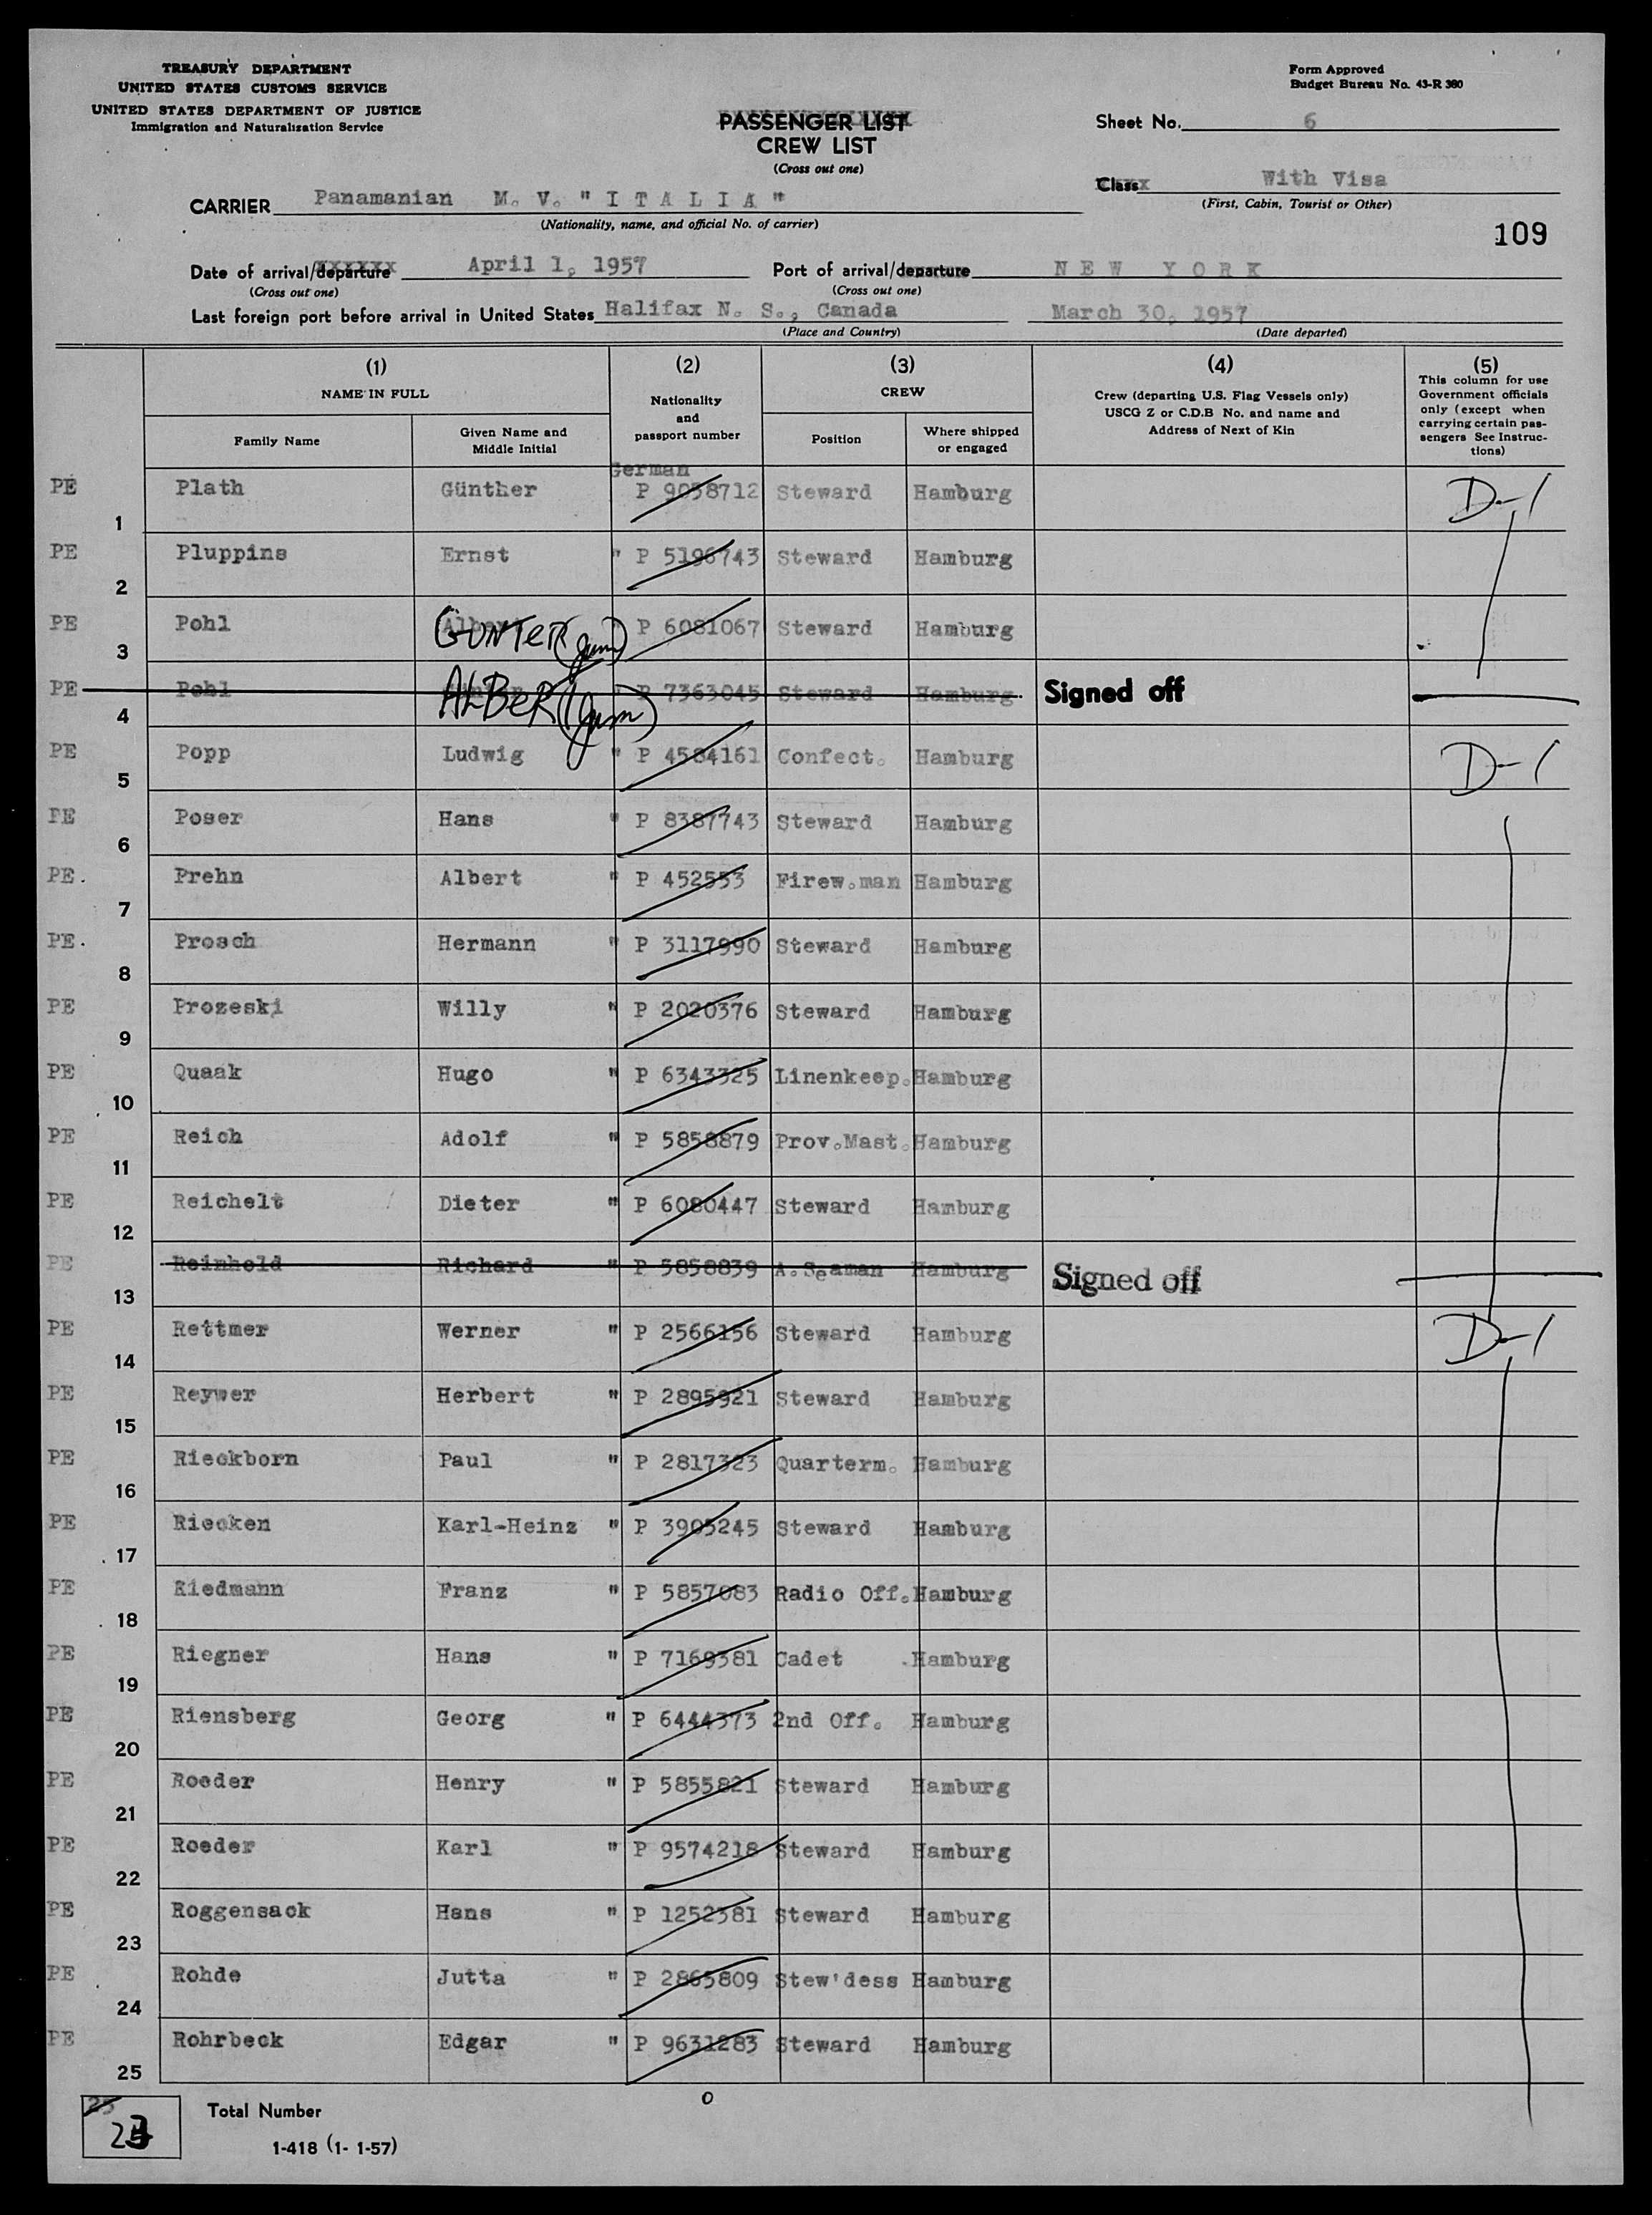 TREASURY DEPARTMENT
UNITED STATES CUSTOMS SERVICE
UNITED STATES DEPARTMENT OF JUSTICE
Immigration and Naturalization Service
Form Approved
Budget Bureau No. 43-R 380
PASSENGER LIST
CREW LIST
(Cross out one)
Sheet No. 6
Class With Visa
(First, Cabin, Tourist or Other)
CARRIER Panamanian M. V. "I T A L I A"
(Nationality, name, and official No. of carrier)
109
Date of arrival/departure April 1, 1957 Port of arrival/departure N E W Y O R K
(Cross out one) (Cross out one)
Last foreign port before arrival in United States Halifax N. S., Canada March 30, 1957
(Place and Country) (Date departed)
(1) (2) (3) (4) (5)
NAME IN FULL Nationality and passport number CREW Crew (departing U.S. Flag Vessels only) USCG Z or C.D.B No. and name and Address of Next of Kin This column for use Government officials only (except when carrying certain passengers See Instructions)
Family Name Given Name and Middle Initial Position Where shipped or engaged
German
PE 1 Plath Günther P 9058712 Steward Hamburg D-1
PE 2 Pluppins Ernst " P 5196743 Steward Hamburg
PE 3 Pohl GUNTER " P 6081067 Steward Hamburg
PE 4 Pohl ALBERT " P 7363045 Steward Hamburg Signed off
PE 5 Popp Ludwig " P 4584161 Confect. Hamburg D-1
PE 6 Poser Hans " P 8387743 Steward Hamburg
PE. 7 Prehn Albert " P 452553 Firew.man Hamburg
PE. 8 Prosch Hermann " P 3117990 Steward Hamburg
PE 9 Prozeski Willy " P 2020376 Steward Hamburg
PE 10 Quaak Hugo " P 6343325 Linenkeep. Hamburg
PE 11 Reich Adolf " P 5858879 Prov.Mast. Hamburg
PE 12 Reichelt Dieter " P 6080447 Steward Hamburg
PE 13 Reinhold Richard " P 5858839 A.Seaman Hamburg Signed off
PE 14 Rettmer Werner " P 2566156 Steward Hamburg D-1
PE 15 Reywer Herbert " P 2895921 Steward Hamburg
PE 16 Rieckborn Paul " P 2817323 Quarterm. Hamburg
PE 17 Riecken Karl-Heinz " P 3905245 Steward Hamburg
PE 18 Riedmann Franz " P 5857083 Radio Off. Hamburg
PE 19 Riegner Hans " P 7169381 Cadet Hamburg
PE 20 Riensberg Georg " P 6444373 2nd Off. Hamburg
PE 21 Roeder Henry " P 5855821 Steward Hamburg
PE 22 Roeder Karl " P 9574218 Steward Hamburg
PE 23 Roggensack Hans " P 1252381 Steward Hamburg
PE 24 Rohde Jutta " P 2865809 Stew'dess Hamburg
PE 25 Rohrbeck Edgar " P 9631283 Steward Hamburg
23 Total Number
1-418 (1- 1-57)